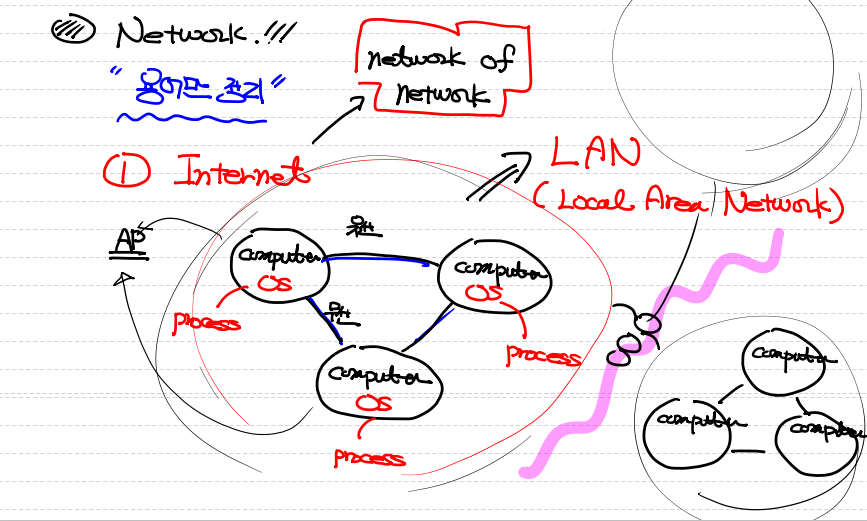 Network.!!!
"용어만 정리"
network of
network
① Internet
LAN
(Local Area Network)
AP
유선
computer
OS
process
computer
OS
process
무선
computer
OS
process
computer
computer
computer